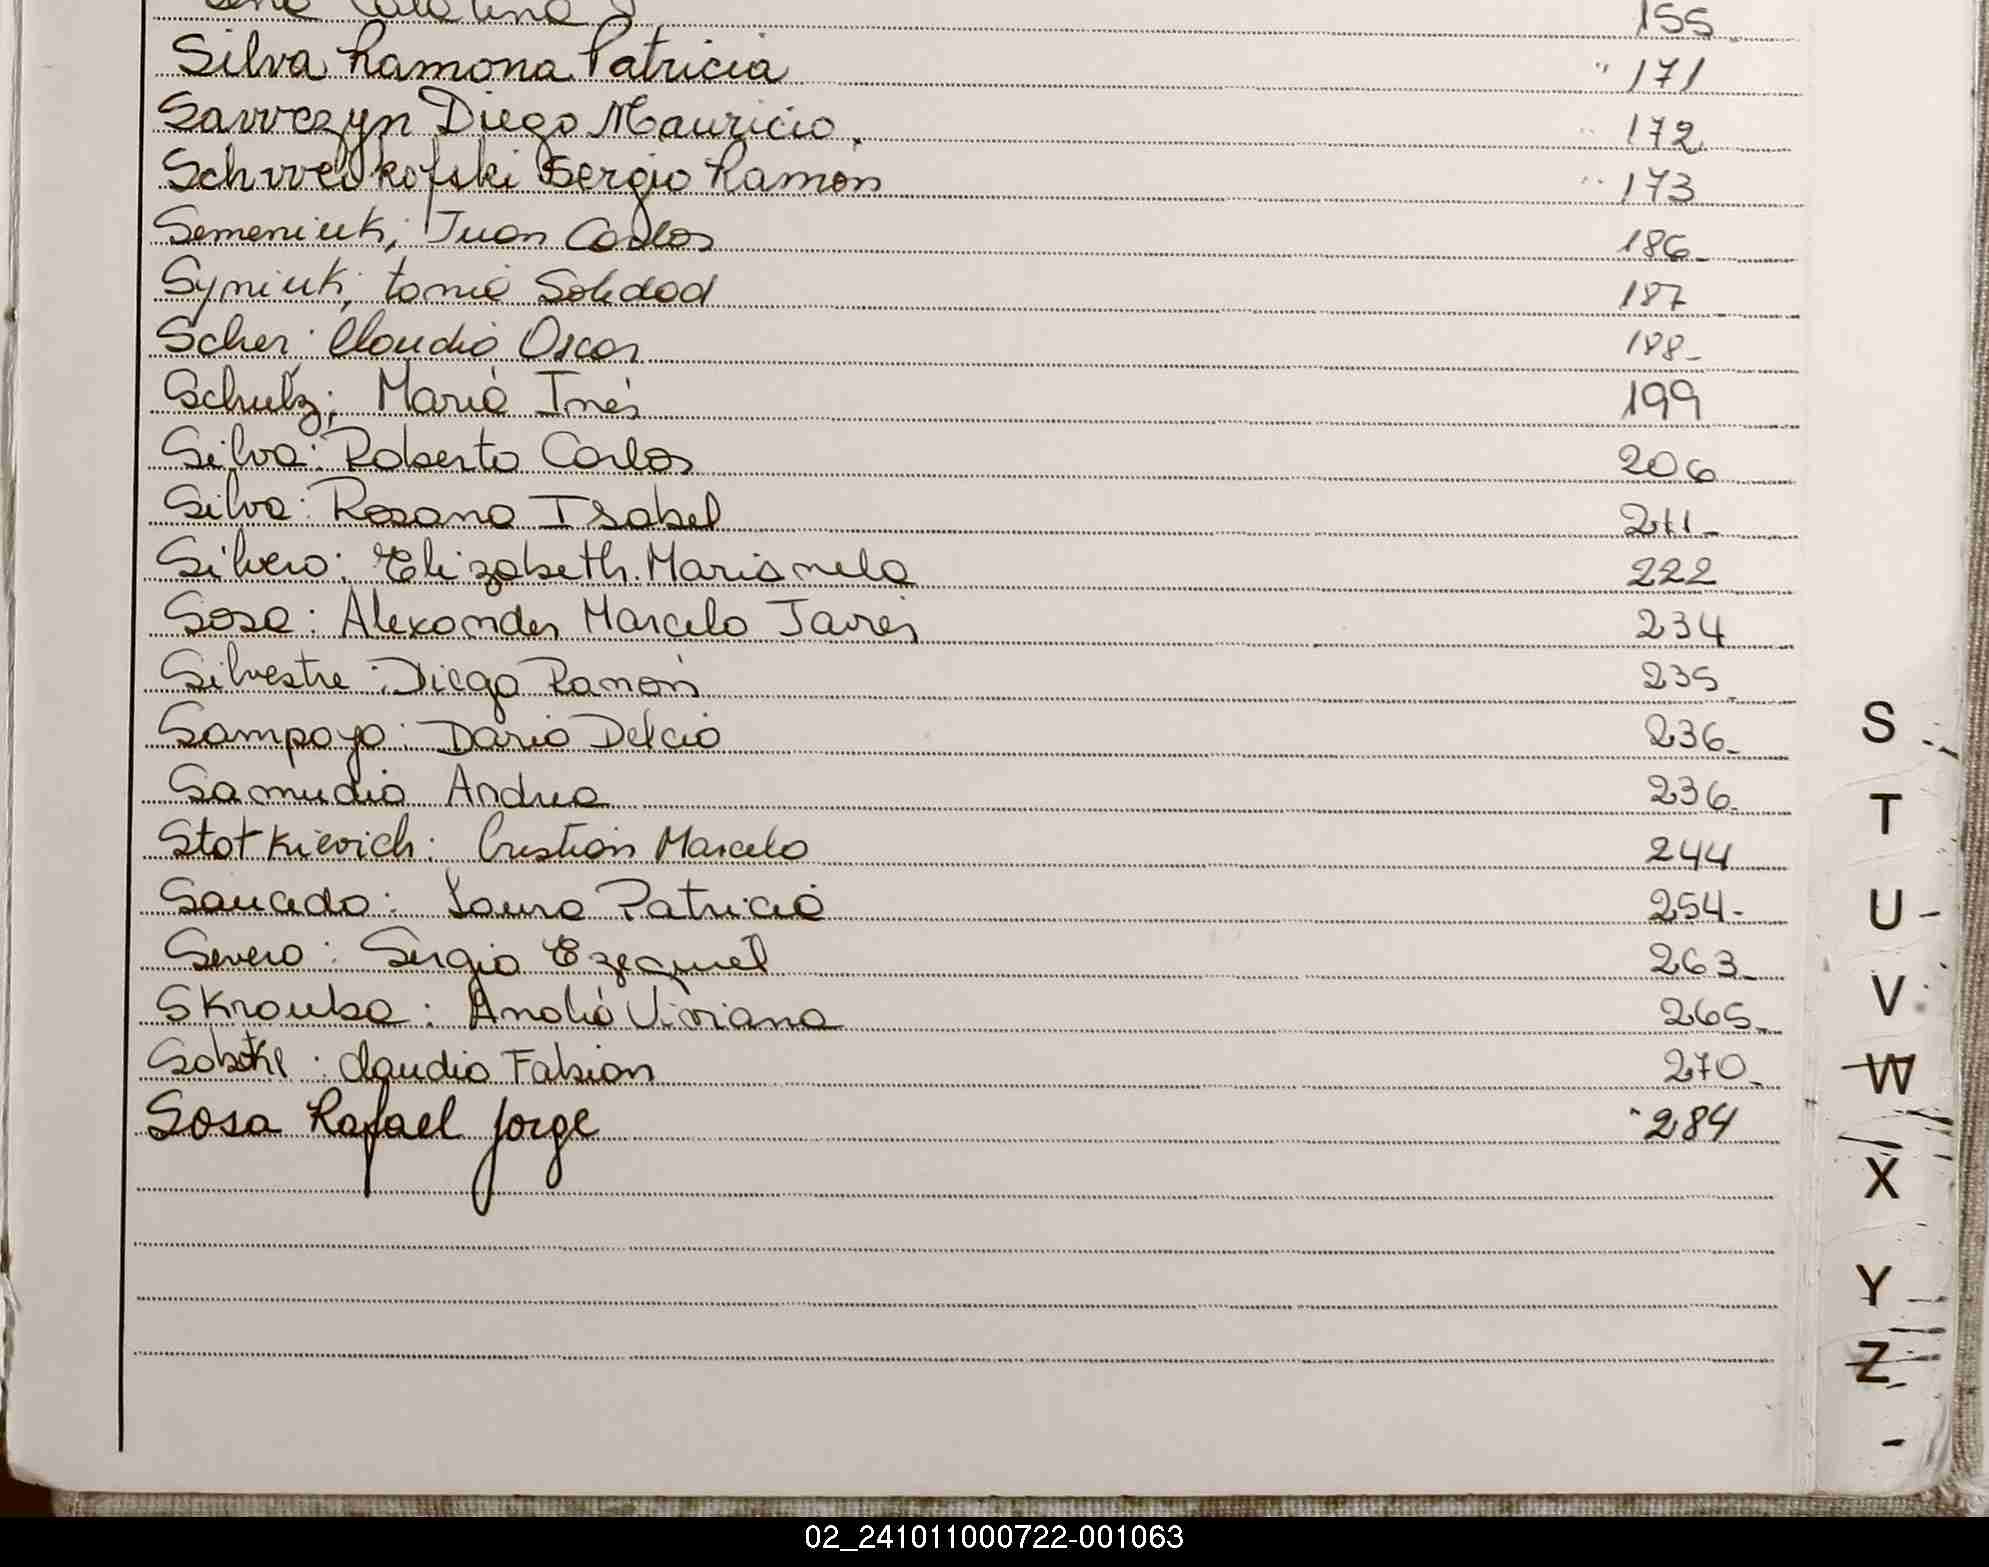 Catalina 155
Silva Ramona Patricia " 171
Savvczyn Diego Mauricio. " 172
Schvveikofski Sergio Ramón " 173
Semeniuk; Juan Carlos 186-
Syniuk; Tania Soledad 187
Scher: Claudio Oscar 188-
Schulz; María Inés 199
Silva: Roberto Carlos 206
Silva: Rosana Isabel 211-
Silvero: Elizabeth Marianela 222
Sosa: Alexander Marcelo Javier 234
Silvestre: Diego Ramón 235-
Sampayo: Dario Delcio 236-
Samudio Andrea 236-
Stotkievich: Cristian Marcelo 244
Saucedo: Laura Patricia 254-
Severo: Sergio Ezequiel 263-
Skrauba: Analía Viviana 265-
Claudio Fabian 270-
Sosa Rafael Jorge 284
S
T
U
V
W
X
Y
Z
02_241011000722-001063